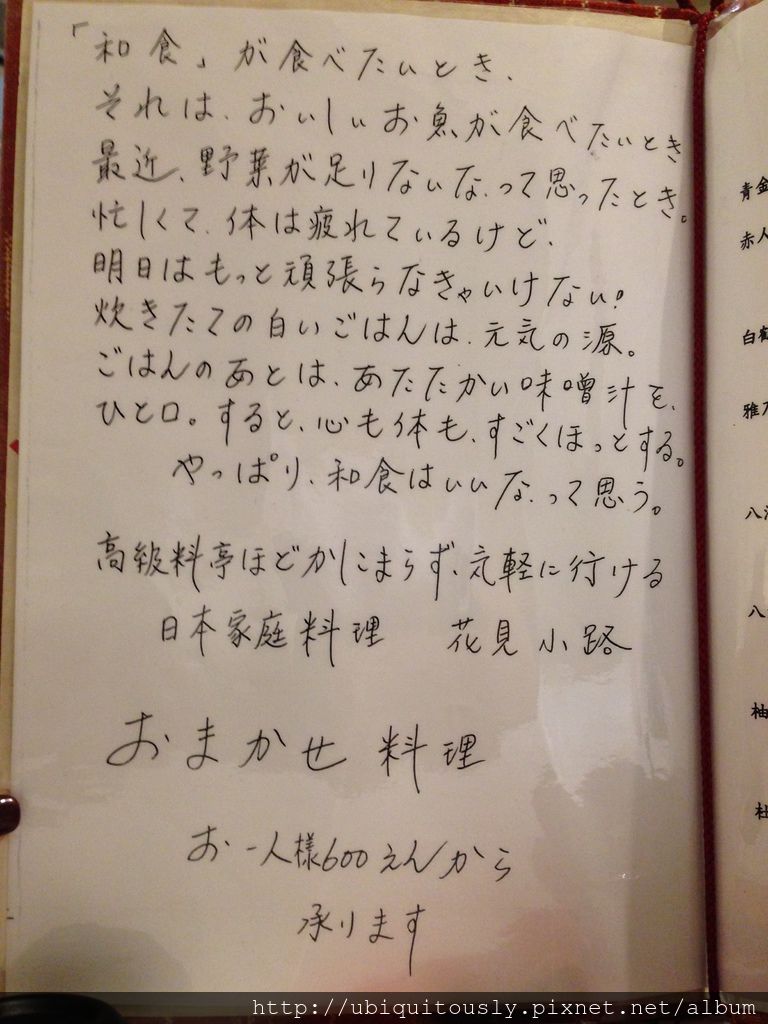 「和食」が食べたいとき、
それは、おいしいお魚が食べたいとき
最近、野菜が足りないな、って思ったとき。
忙しくて、体は疲れているけど、
明日はもっと頑張らなきゃいけない!
炊きたての白いごはんは、元気の源。
ごはんのあとは、あたたかい味噌汁を、
ひと口。すると、心も体も、すごくほっとする。
やっぱり、和食はいいな、って思う。
高級料亭ほどかしこまらず、気軽に行ける
日本家庭料理 花見小路
おまかせ料理
お一人様600えんから
承ります
青金
赤人
白鶴
雅
八
八
柚
杜
http://ubiquitously.pixnet.net/album